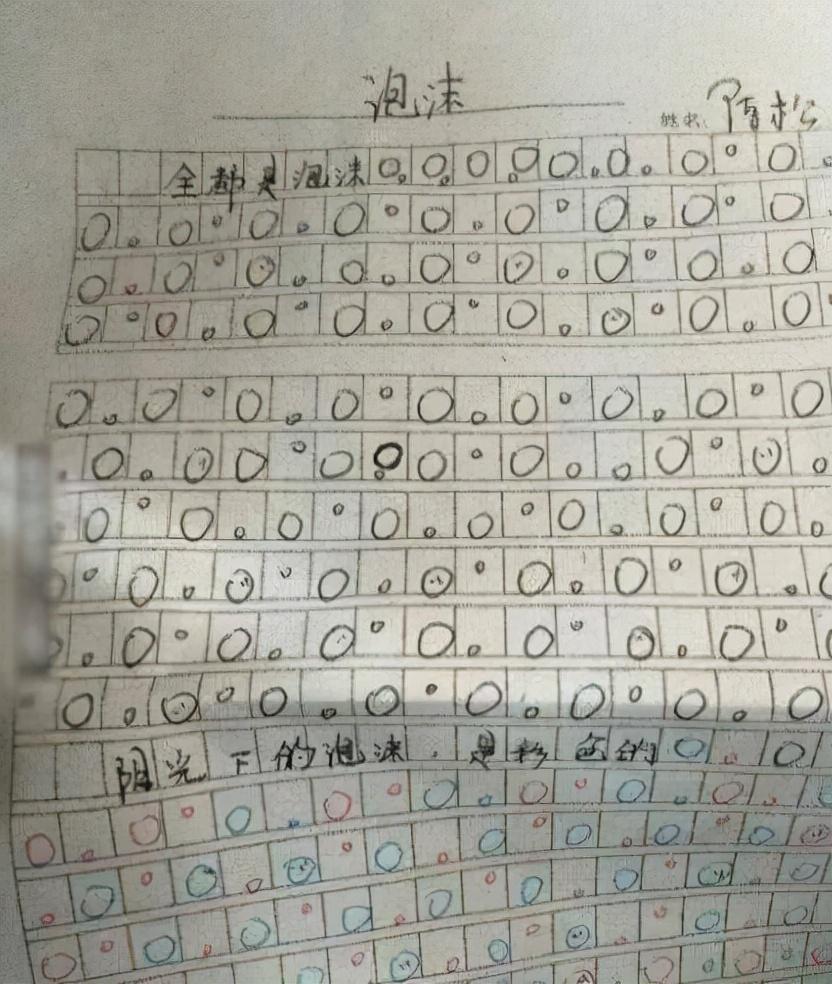 泡沫
姓名:
全都是泡沫
阳光下的泡沫，是彩色的